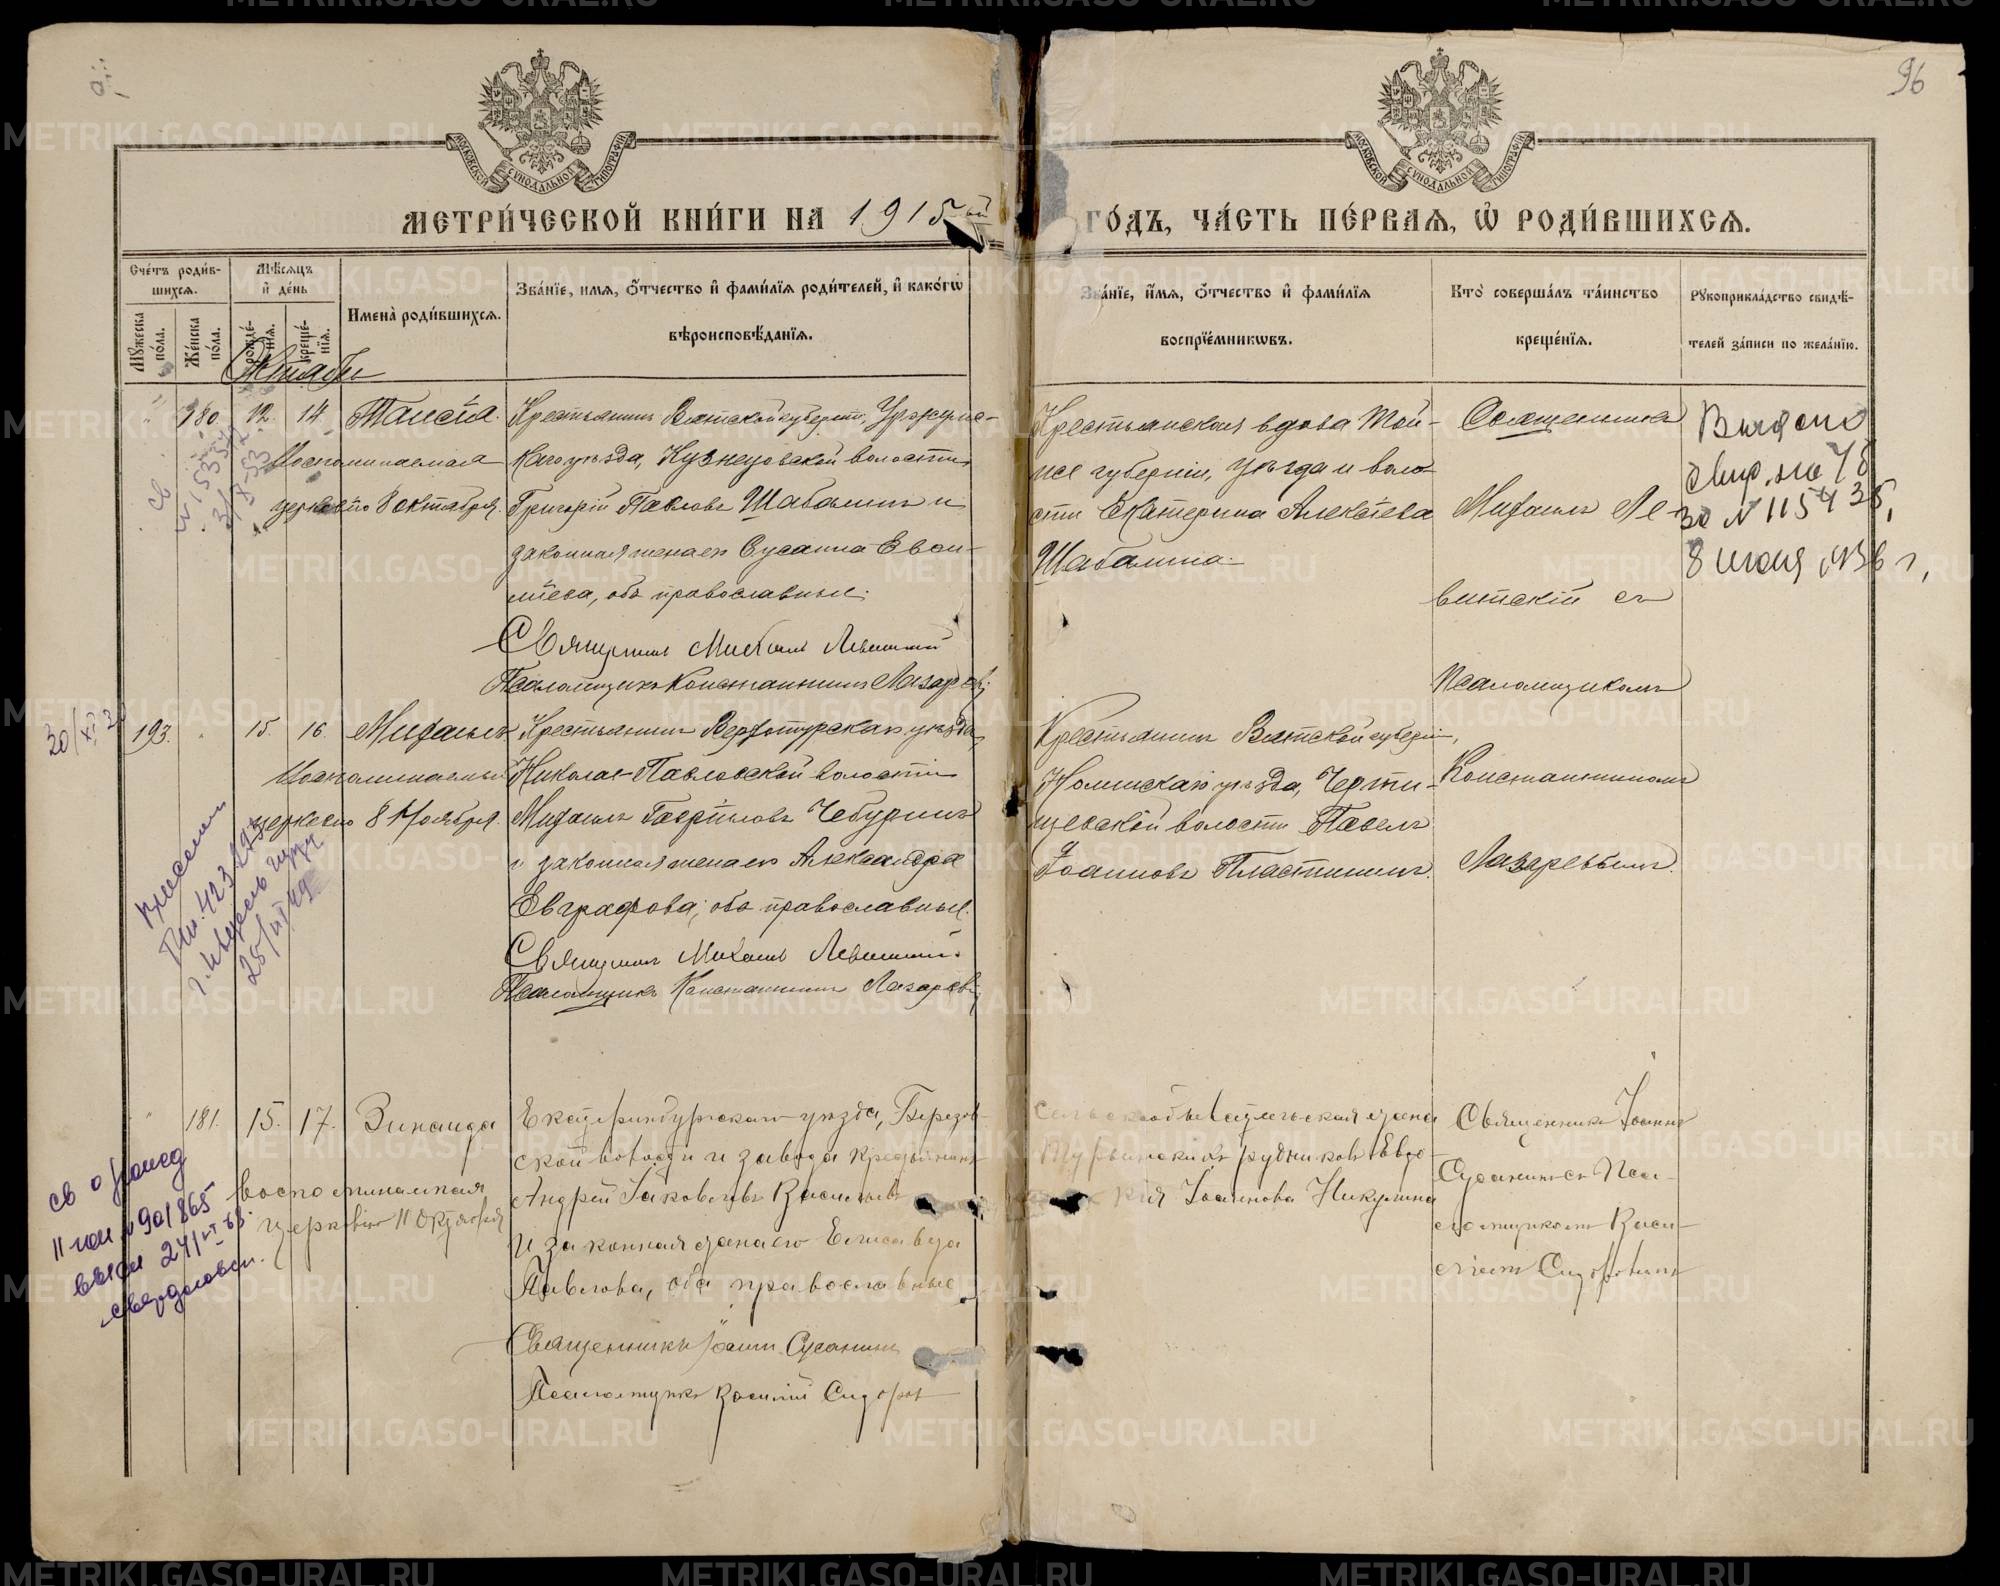 96
МОСКОВСКОЙ СѴНОДАЛЬНОЙ ТИПОГРАФІИ
МОСКОВСКОЙ СѴНОДАЛЬНОЙ ТИПОГРАФІИ
МЕТРИ́ЧЕСКОЙ КНИ́ГИ НА 1915-ый ГО́ДЪ, ЧА́СТЬ ПЕ́РВАЯ, Ѡ҆ РОДИ́ВШИХСЯ.
Сче́тъ роди́вшихся.
Мѣ́сяцъ и҆ де́нь
Имена̀ роди́вшихся.
Зва́нїе, имя, ѻ҆́тчество и҆ фами́лїя роди́телей, и҆ како́гѡ вѣроисповѣ́данїя.
Зва́нїе, и҆́мя, ѻ҆́тчество и҆ фами́лїя воспрїе́мникѡвъ.
Кто̀ соверша́лъ та́инство креще́нїя.
Рꙋкоприкла́дство свидѣ́телей за́писи по жела́нїю.
Мꙋжеска по́ла.
Же́нска по́ла.
рожде́нїя.
креще́нїя.
Октябрь
180. 12. 14. Таисія.
Воспоминаемая
церковію 8 октября.
Крестьянинъ Вятской губерніи, Уржумс-
каго уѣзда, Кузнецовской волости
Григорій Павловъ Шабалинъ и
законная жена его Сусанна Евои-
міева, оба православные.
Священникъ Михаилъ Левитскій
Псаломщикъ Константинъ Лазаревъ
Крестьянская вдова Той-
же губерніи, уѣзда и воло-
сти Екатерина Алексѣева
Шабалина.
Священникъ
Михаилъ Ле-
витскій съ
Псаломщикомъ
Константиномъ
Лазаревымъ.
Выдано
за № 115435,
8 июля 1936 г,
193. 15. 16. Михаилъ
Воспоминаемый
церковію 8 Ноября.
Крестьянинъ Верхотурскаго уѣзда,
Николае-Павловской волости
Михаилъ Гавріиловъ Чебуринъ
и законная жена его Александра
Евграфова, оба православные.
Священникъ Михаилъ Левитскій.
Псаломщикъ Константинъ Лазаревъ
Крестьянинъ Вятской губерніи,
Нолинскаго уѣзда, Черти-
щевской волости Павелъ
Іоанновъ Пластининъ.
181. 15. 17. Зинаида
воспоминаемая
церковію 11 октября
Екатеринбургскаго уѣзда, Березов-
ской волости и завода крестьянинъ
Андрей Іаковлевъ Васильевъ
и законная жена его Елисавета
Павлова, оба православные
Священникъ Іоаннъ Сусанинъ
Псаломщикъ Василій Сидоровъ
Сельскаго обывателя жена
Турьинскихъ рудниковъ Евдо-
кія Іоаннова Никулина
Священникъ Іоаннъ
Сусанинъ съ Пса-
ломщикомъ Васи-
ліемъ Сидоровымъ
св о рожд
II пол № 901865
выдан 24/VI-65.
свердловск.
METRIKI.GASO-URAL.RU